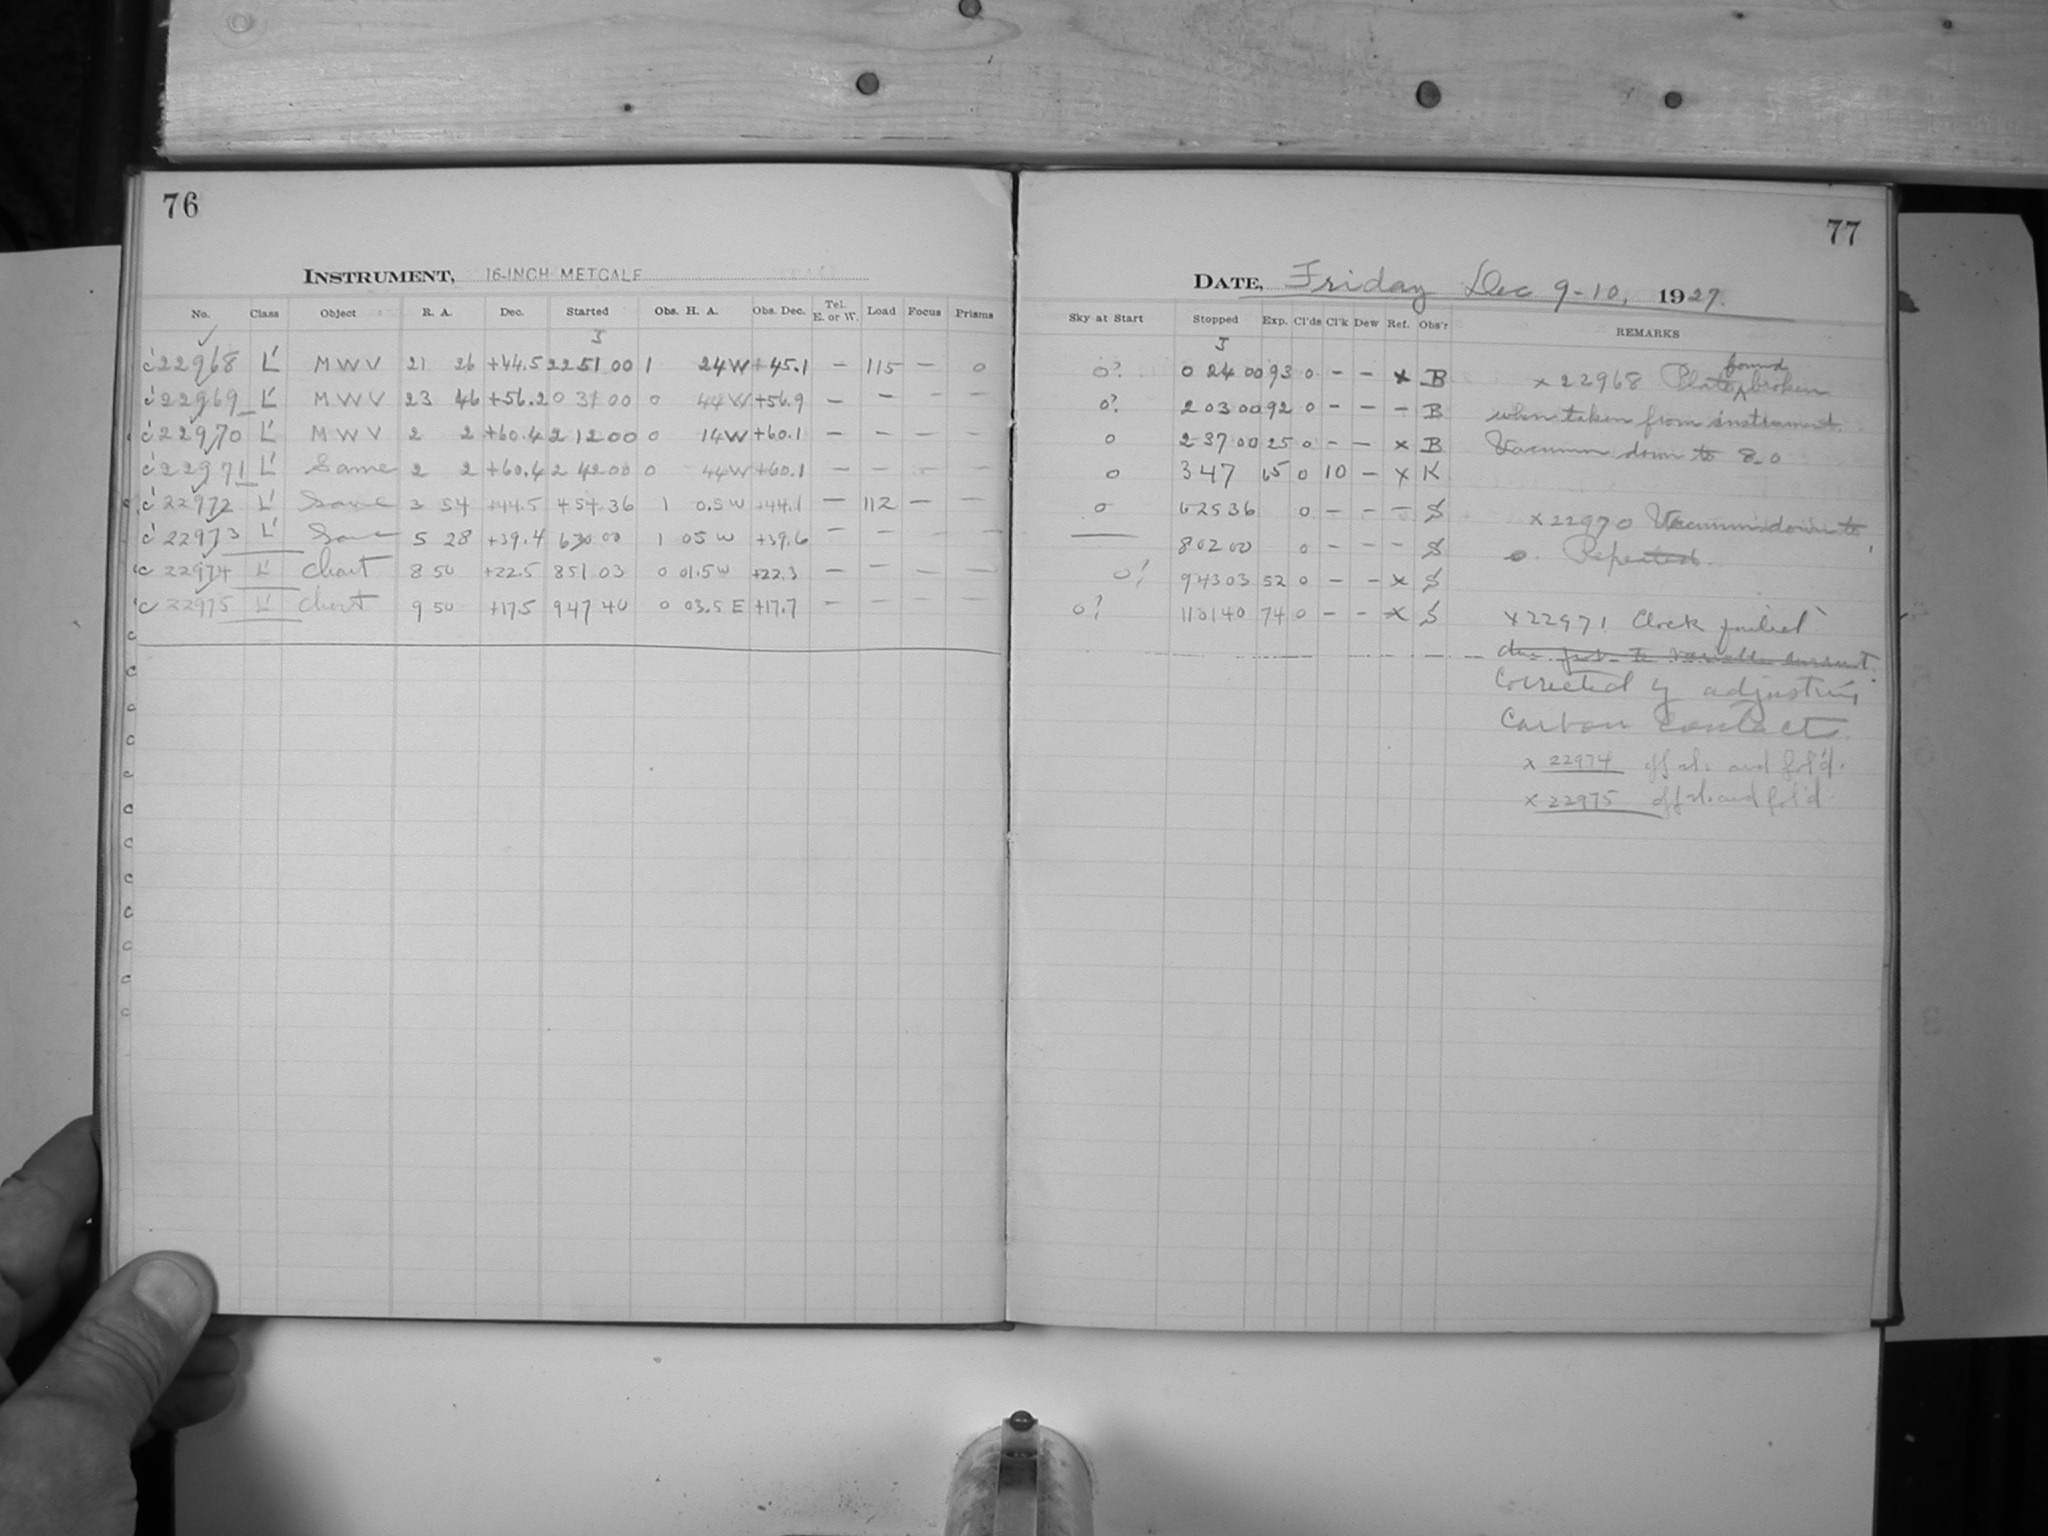 76
INSTRUMENT, 16-INCH METCALF
No. Class Object R. A. Dec. Started Obs. H. A. Obs. Dec. Tel. E. or W. Load Focus Prisms
c 22968 L' M W V 21 26 +44.5 22 51 00 1 24 W +45.1 — 115 — 0
c 22969 L' M W V 23 46 +56.2 0 31 00 0 44 W +56.9 — — — —
c 22970 L' M W V 2 2 +60.4 2 12 00 0 14 W +60.1 — — — —
c 22971 L' Same 2 2 +60.4 2 42 00 0 44 W +60.1 — — — —
c 22972 L' Same 3 54 +44.5 4 54 36 1 0.5 W +44.1 — 112 — —
c 22973 L' Same 5 28 +39.4 6 30 00 1 05 W +39.6 — — — —
c 22974 L' Chart 8 50 +22.5 8 51 03 0 01.5 W +22.3 — — — —
c 22975 L' Chart 9 50 +17.5 9 47 40 0 03.5 E +17.7 — — — —
77
DATE, Friday Dec 9-10, 1927.
Sky at Start Stopped Exp. Cl'ds Cl'k Dew Ref. Obs'r REMARKS
0? 0 24 00 93 0 — — x B
0? 2 03 00 92 0 — — — B
0 2 37 00 25 0 — — x B
0 3 47 65 0 10 — x K
0 6 25 36 0 — — — S
— 8 02 00 0 — — — S
0? 9 43 03 52 0 — — x S
0? 11 01 40 74 0 — — x S
x 22968 Plate found broken
when taken from instrument.
Vacuum down to 8.0
x 22970 Vacuum down to
0. Repeated.
x 22971 Clock failed
due to variable current.
Corrected by adjusting
Carbon contacts.
x 22974 off sl. and fol'd.
x 22975 off sl. and fol'd